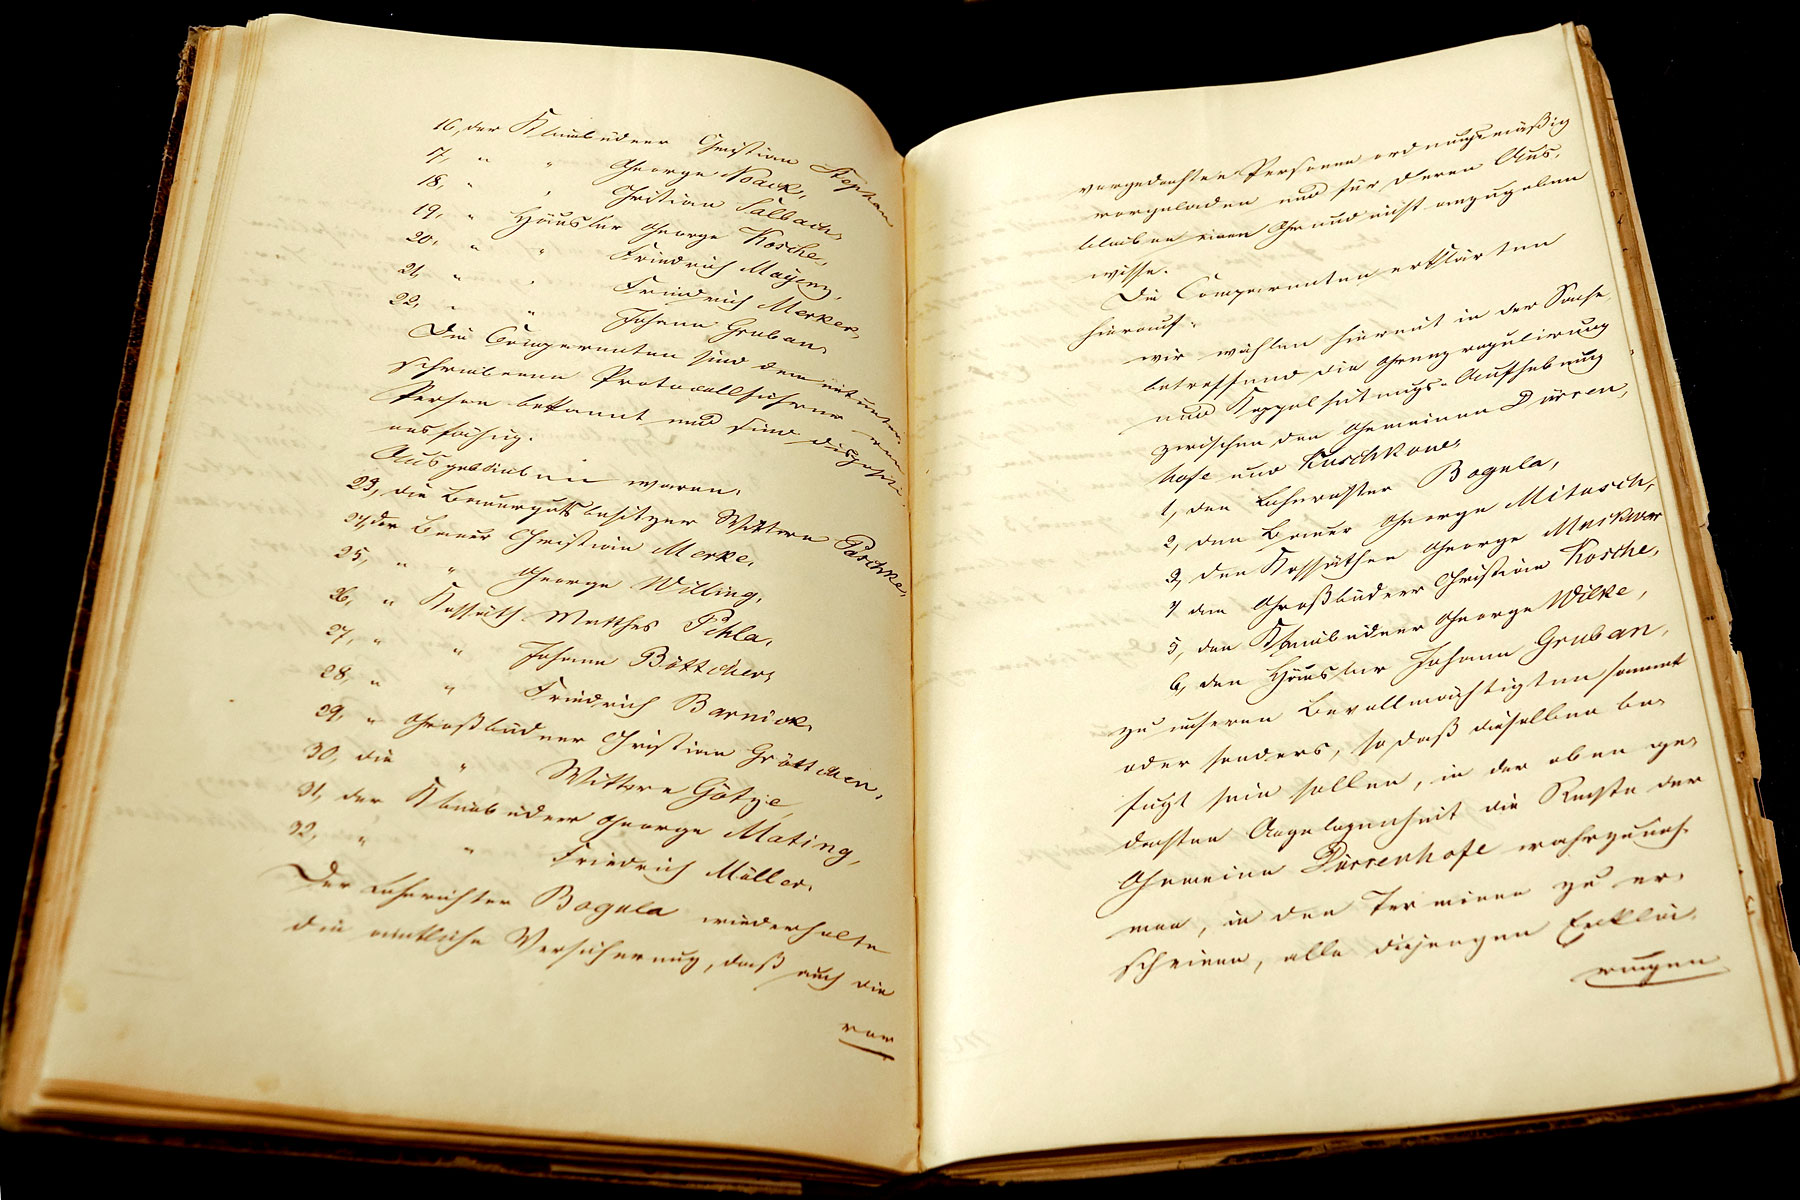 16, der Kleinbüdner Christian Stephan
17, " " George Noack,
18, " " Christian Salbach,
19, " Häusler George Kosche,
20, " " Friedrich Mayenz,
21, " " Friedrich Merker,
22, " " Johann Gruban.
Die Comparenten sind dem mitunter-
schriebenen Protocollführer von
Person bekannt und sind dispositi-
onsfähig.
Ausgeblieben waren:
23, die Bauergutsbesitzer Wittwe Paschke,
24, der Bauer Christian Merke,
25, " " George Willing,
26, " Kossäth Matthes Pehla,
27, " " Johann Böttcher,
28, " " Friedrich Barnick,
29, " Großbüdner Christian Gröttchen,
30, die " Wittwe Götze,
31, der Kleinbüdner George Mating,
32, " " Friedrich Müller.
Der Lehnrichter Bogula wiederholte
die amtliche Versicherung, daß auch die
vor
vorgedachten Personen ordnungsmäßig
vorgeladen und für deren Aus-
bleiben einen Grund nicht anzugeben
wisse.
Die Comparenten erklärten
hierauf:
wir wählen hiermit in der Sache
betreffend die Grenzregulirung
und Koppelhütungs-Aufhebung
zwischen den Gemeinen Dürren-
hofe und Kuschkow,
1, den Lehnrichter Bogula,
2, den Bauer George Mitasch,
3, den Kossäthen George Markwar
4 den Großbüdner Christian Kosche,
5, den Kleinbüdner George Wilke,
6, den Häusler Johann Gruban,
zu unseren Bevollmächtigten sammt
oder sonders, so daß dieselben be-
fugt sein sollen, in der oben ge-
dachten Angelegenheit die Rechte der
Gemeine Dürrenhofe wahrzuneh-
men, in den Terminen zu er-
scheinen, alle diejenigen Erklä-
rungen